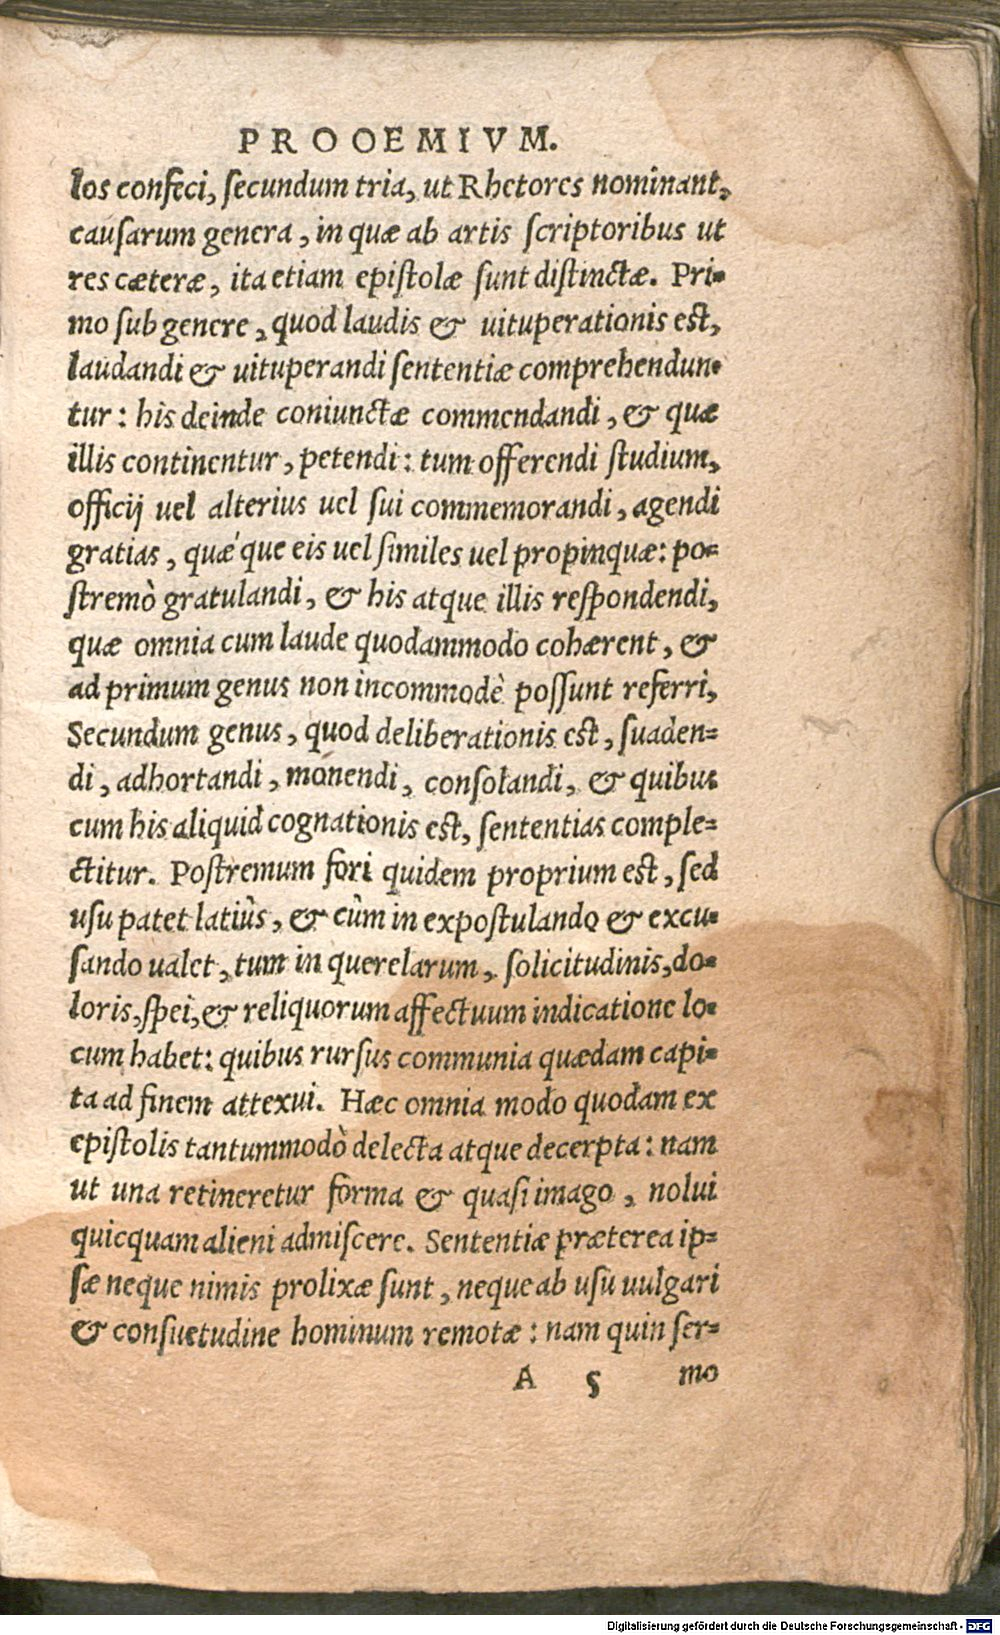 PROOEMIVM.
los confeci, secundum tria, ut Rhetores nominant,
causarum genera, in quæ ab artis scriptoribus ut
res cæteræ, ita etiam epistolæ sunt distinctæ. Pri-
mo sub genere, quod laudis & uituperationis est,
laudandi & uituperandi sententiæ comprehendun-
tur: his deinde coniunctæ commendandi, & quæ
illis continentur, petendi: tum offerendi studium,
officij uel alterius uel sui commemorandi, agendi
gratias, quæ´que eis uel similes uel propinquæ: po-
stremò gratulandi, & his atque illis respondendi,
quæ omnia cum laude quodammodo cohærent, &
ad primum genus non incommodè possunt referri,
Secundum genus, quod deliberationis est, suaden-
di, adhortandi, monendi, consolandi, & quibus
cum his aliquid cognationis est, sententias comple-
ctitur. Postremum fori quidem proprium est, sed
usu patet latiùs, & cùm in expostulando & excu-
sando ualet, tum in querelarum, solicitudinis, do-
loris, spei, & reliquorum affectuum indicatione lo-
cum habet: quibus rursus communia quædam capi-
ta ad finem attexui. Hæc omnia modo quodam ex
epistolis tantummodò delecta atque decerpta: nam
ut una retineretur forma & quasi imago, nolui
quicquam alieni admiscere. Sententiæ præterea ip-
sæ neque nimis prolixæ sunt, neque ab usu uulgari
& consuetudine hominum remotæ: nam quin ser-
A 5 mo
Digitalisierung gefördert durch die Deutsche Forschungsgemeinschaft - DFG